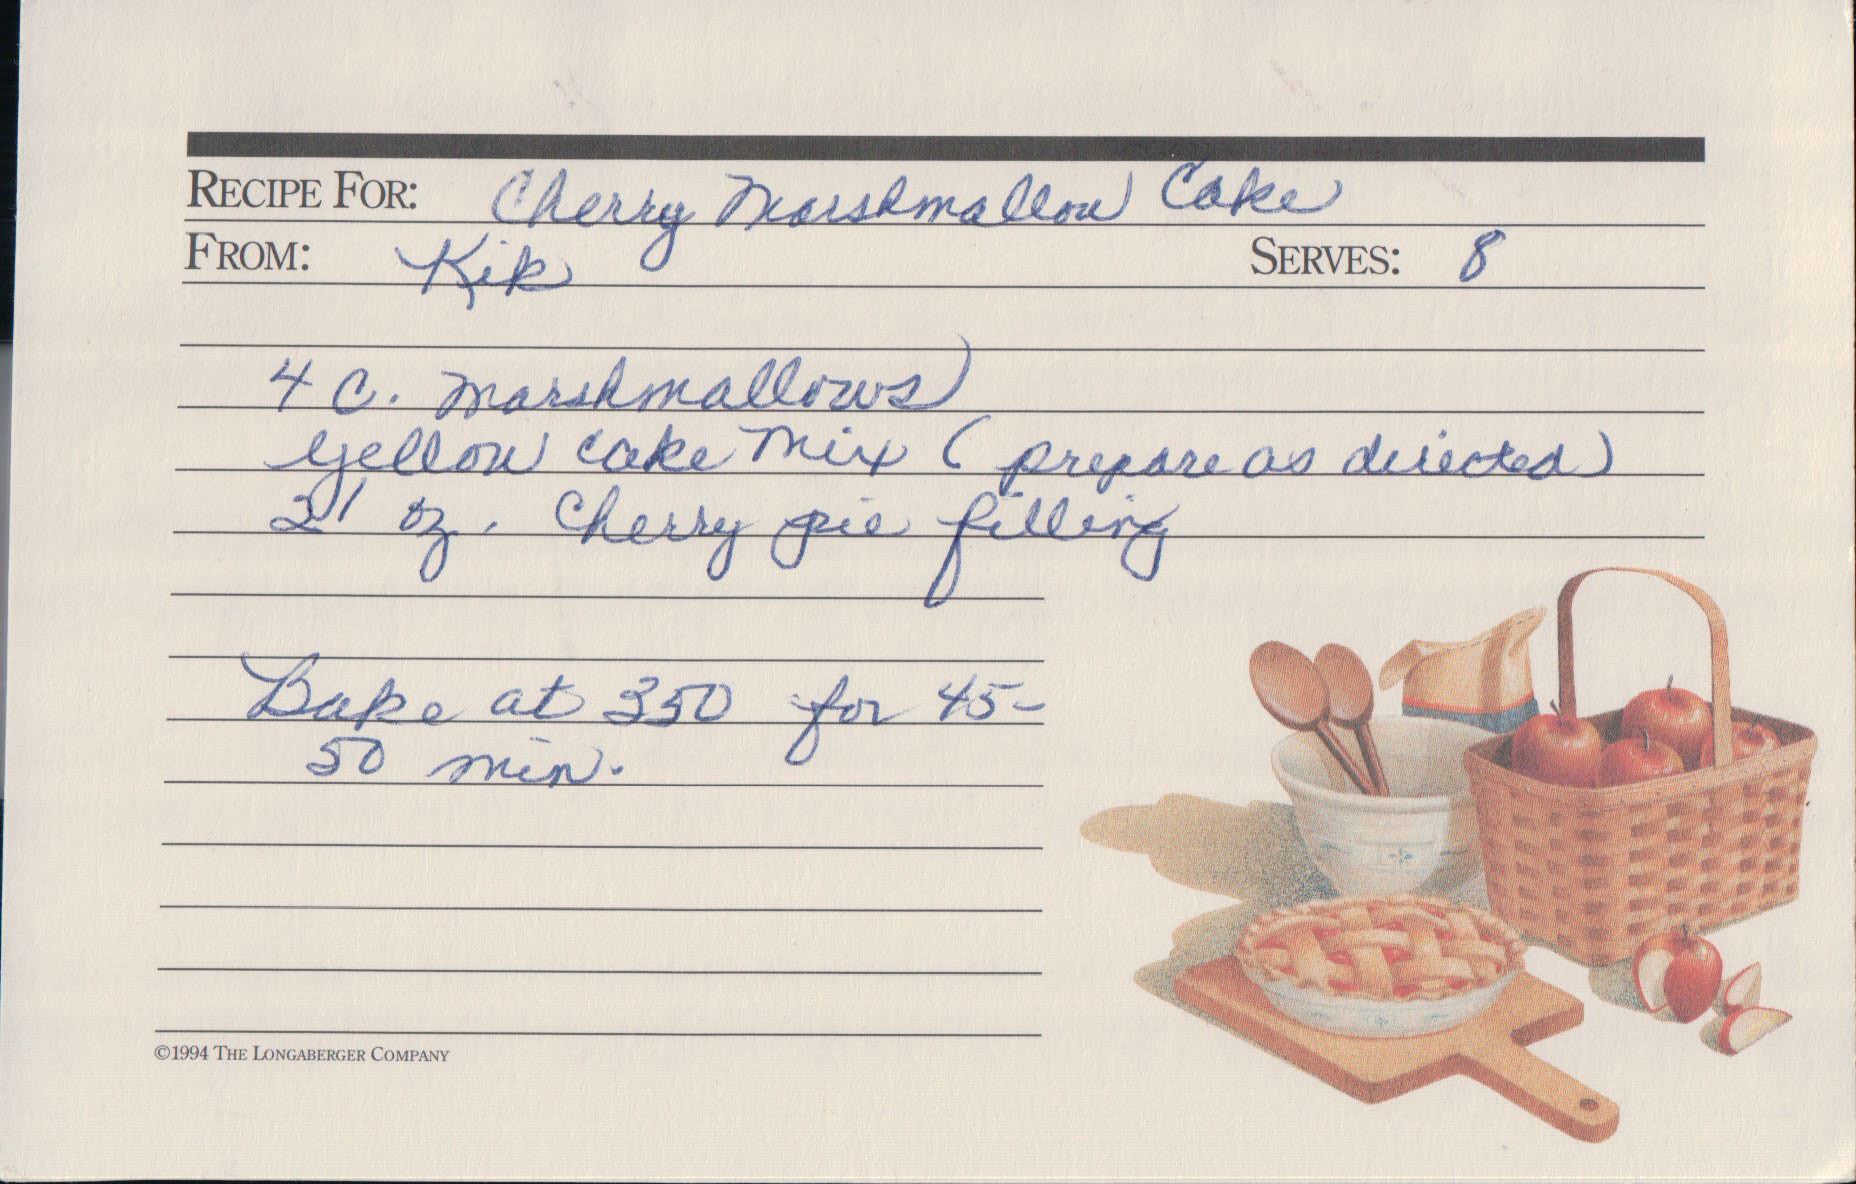 RECIPE FOR: Cherry Marshmallow Cake
FROM: Kik SERVES: 8
4 C. marshmallows
yellow cake mix (prepare as directed)
21 oz. Cherry pie filling
Bake at 350 for 45-
50 min.
©1994 THE LONGABERGER COMPANY